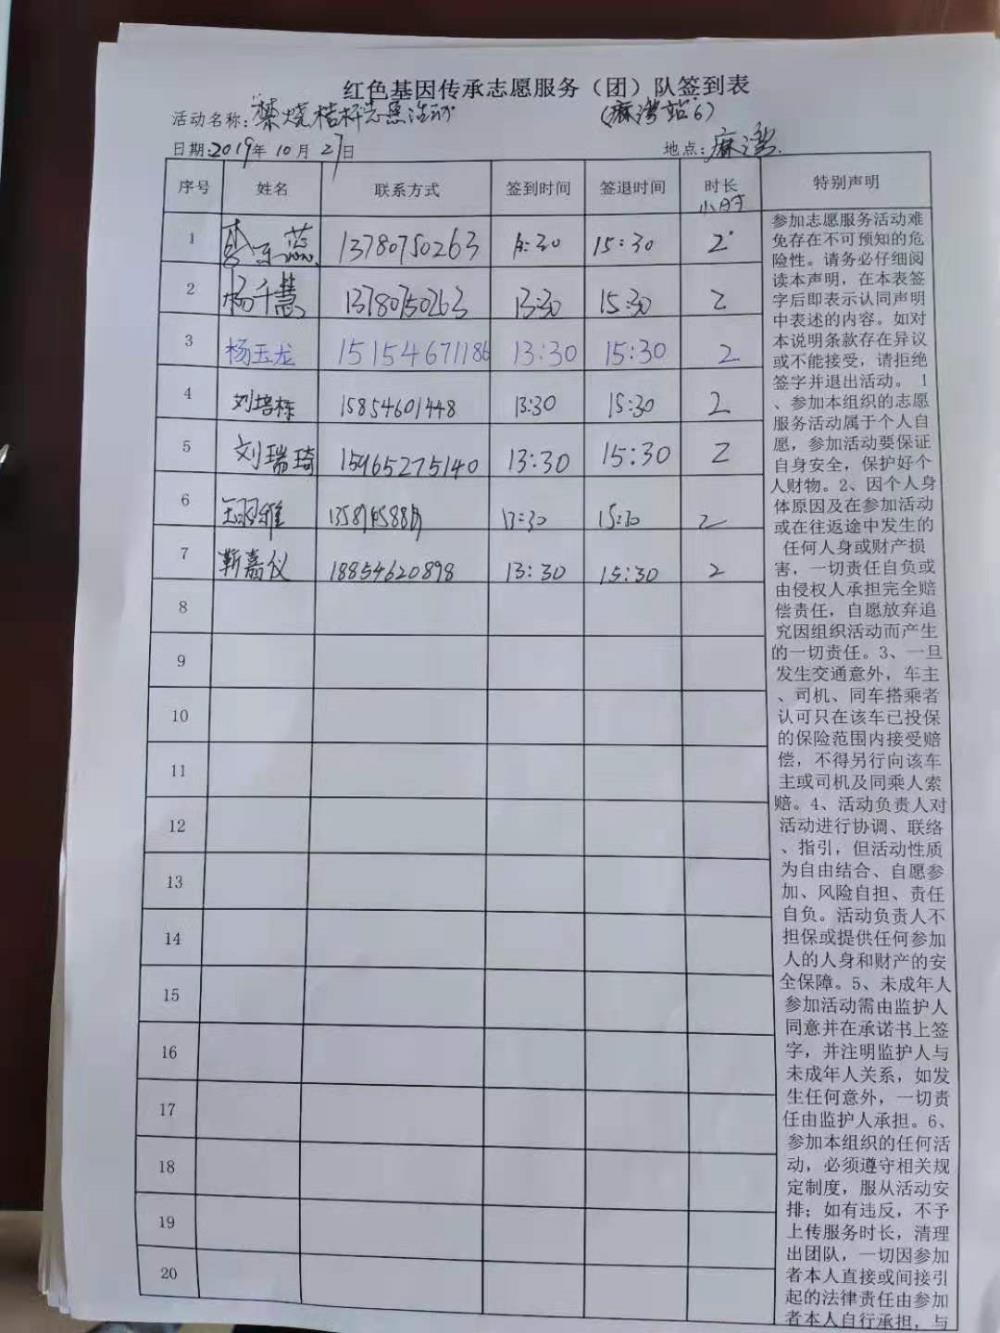 红色基因传承志愿服务（团）队签到表
活动名称: 禁烧秸秆志愿活动 (麻湾站6)
日期: 2019年10月27日 地点: 麻湾
序号 姓名 联系方式 签到时间 签退时间 时长 特别声明
小时
1 13780750263 13:30 15:30 2
2 杨千慧 13780750263 13:30 15:30 2
3 杨玉龙 15154671186 13:30 15:30 2
4 刘培栋 15854601448 13:30 15:30 2
5 刘瑞琦 15965275140 13:30 15:30 2
6 13:30 15:30 2
7 靳嘉仪 18854620898 13:30 15:30 2
8
9
10
11
12
13
14
15
16
17
18
19
20
参加志愿服务活动难
免存在不可预知的危
险性。请务必仔细阅
读本声明，在本表签
字后即表示认同声明
中表述的内容。如对
本说明条款存在异议
或不能接受，请拒绝
签字并退出活动。 1
、参加本组织的志愿
服务活动属于个人自
愿，参加活动要保证
自身安全，保护好个
人财物。2、因个人身
体原因及在参加活动
或在往返途中发生的
任何人身或财产损
害，一切责任自负或
由侵权人承担完全赔
偿责任，自愿放弃追
究因组织活动而产生
的一切责任。3、一旦
发生交通意外，车主
、司机、同车搭乘者
认可只在该车已投保
的保险范围内接受赔
偿，不得另行向该车
主或司机及同乘人索
赔。4、活动负责人对
活动进行协调、联络
、指引，但活动性质
为自由结合、自愿参
加、风险自担、责任
自负。活动负责人不
担保或提供任何参加
人的人身和财产的安
全保障。5、未成年人
参加活动需由监护人
同意并在承诺书上签
字，并注明监护人与
未成年人关系，如发
生任何意外，一切责
任由监护人承担。6、
参加本组织的任何活
动，必须遵守相关规
定制度，服从活动安
排；如有违反，不予
上传服务时长，清理
出团队，一切因参加
者本人直接或间接引
起的法律责任由参加
者本人自行承担，与